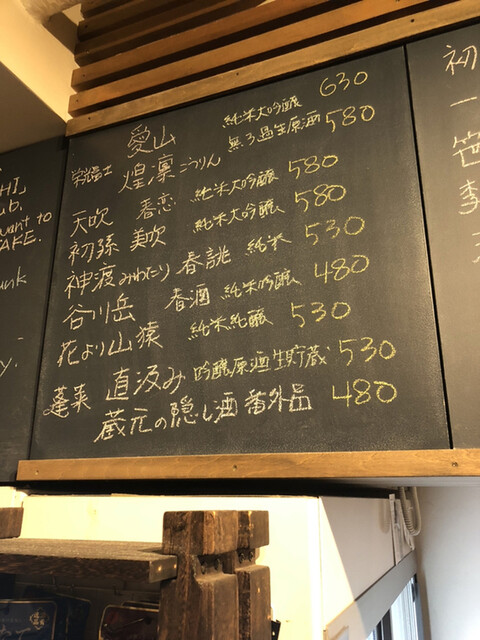 愛山 純米大吟醸 630
栄冨士 煌凛 こうりん 無ろ過生原酒 580
天吹 春恋 純米大吟醸 580
初孫 美吹 純米大吟醸 580
神渡 みわたり 春誂 純米 530
谷川岳 春酒 純米吟醸 480
花より山猿 純米純醸 530
蓬莱 直汲み 吟醸原酒生貯蔵 530
蔵元の隠し酒 番外品 480
HI,
ub.
want to
AKE.
unk
y.
初
一
笹
李